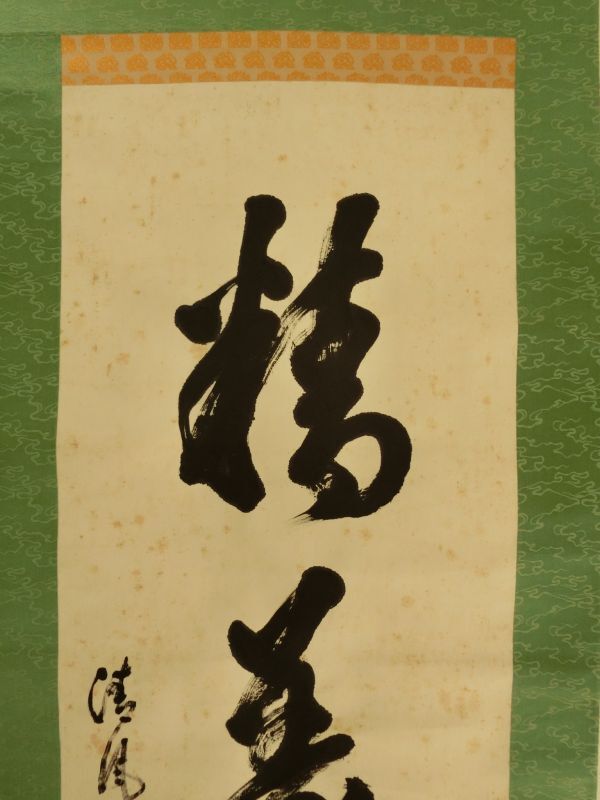 精
清風